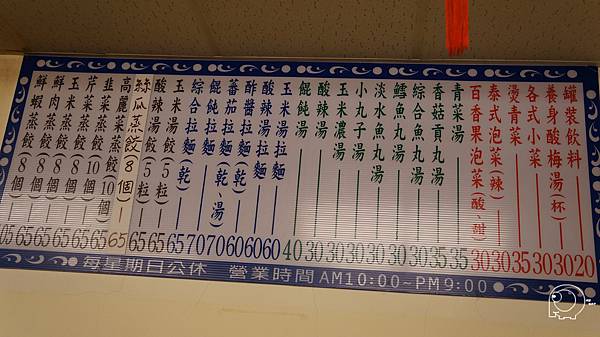 罐裝飲料20
養身酸梅湯(杯)30
各式小菜30
燙青菜35
泰式泡菜(辣)30
百香果泡菜(酸、甜)30
青菜湯35
香菇貢丸湯35
綜合魚丸湯30
鱈魚丸湯30
淡水魚丸湯30
小丸子湯30
玉米濃湯30
酸辣湯30
餛飩湯40
玉米湯拉麵60
酸辣湯拉麵60
酢醬拉麵60
蕃茄拉麵(乾、湯)60
餛飩拉麵(乾、湯)70
綜合拉麵(乾)70
玉米湯餃65
酸辣湯餃(5粒)65
絲瓜蒸餃(8個)65
高麗菜65
韭菜蒸餃(10個)65
芹菜蒸餃(10個)65
玉米蒸餃(8個)65
鮮肉蒸餃(8個)65
鮮蝦蒸餃(8個)05
每星期日公休 營業時間AM10:00~PM9:00